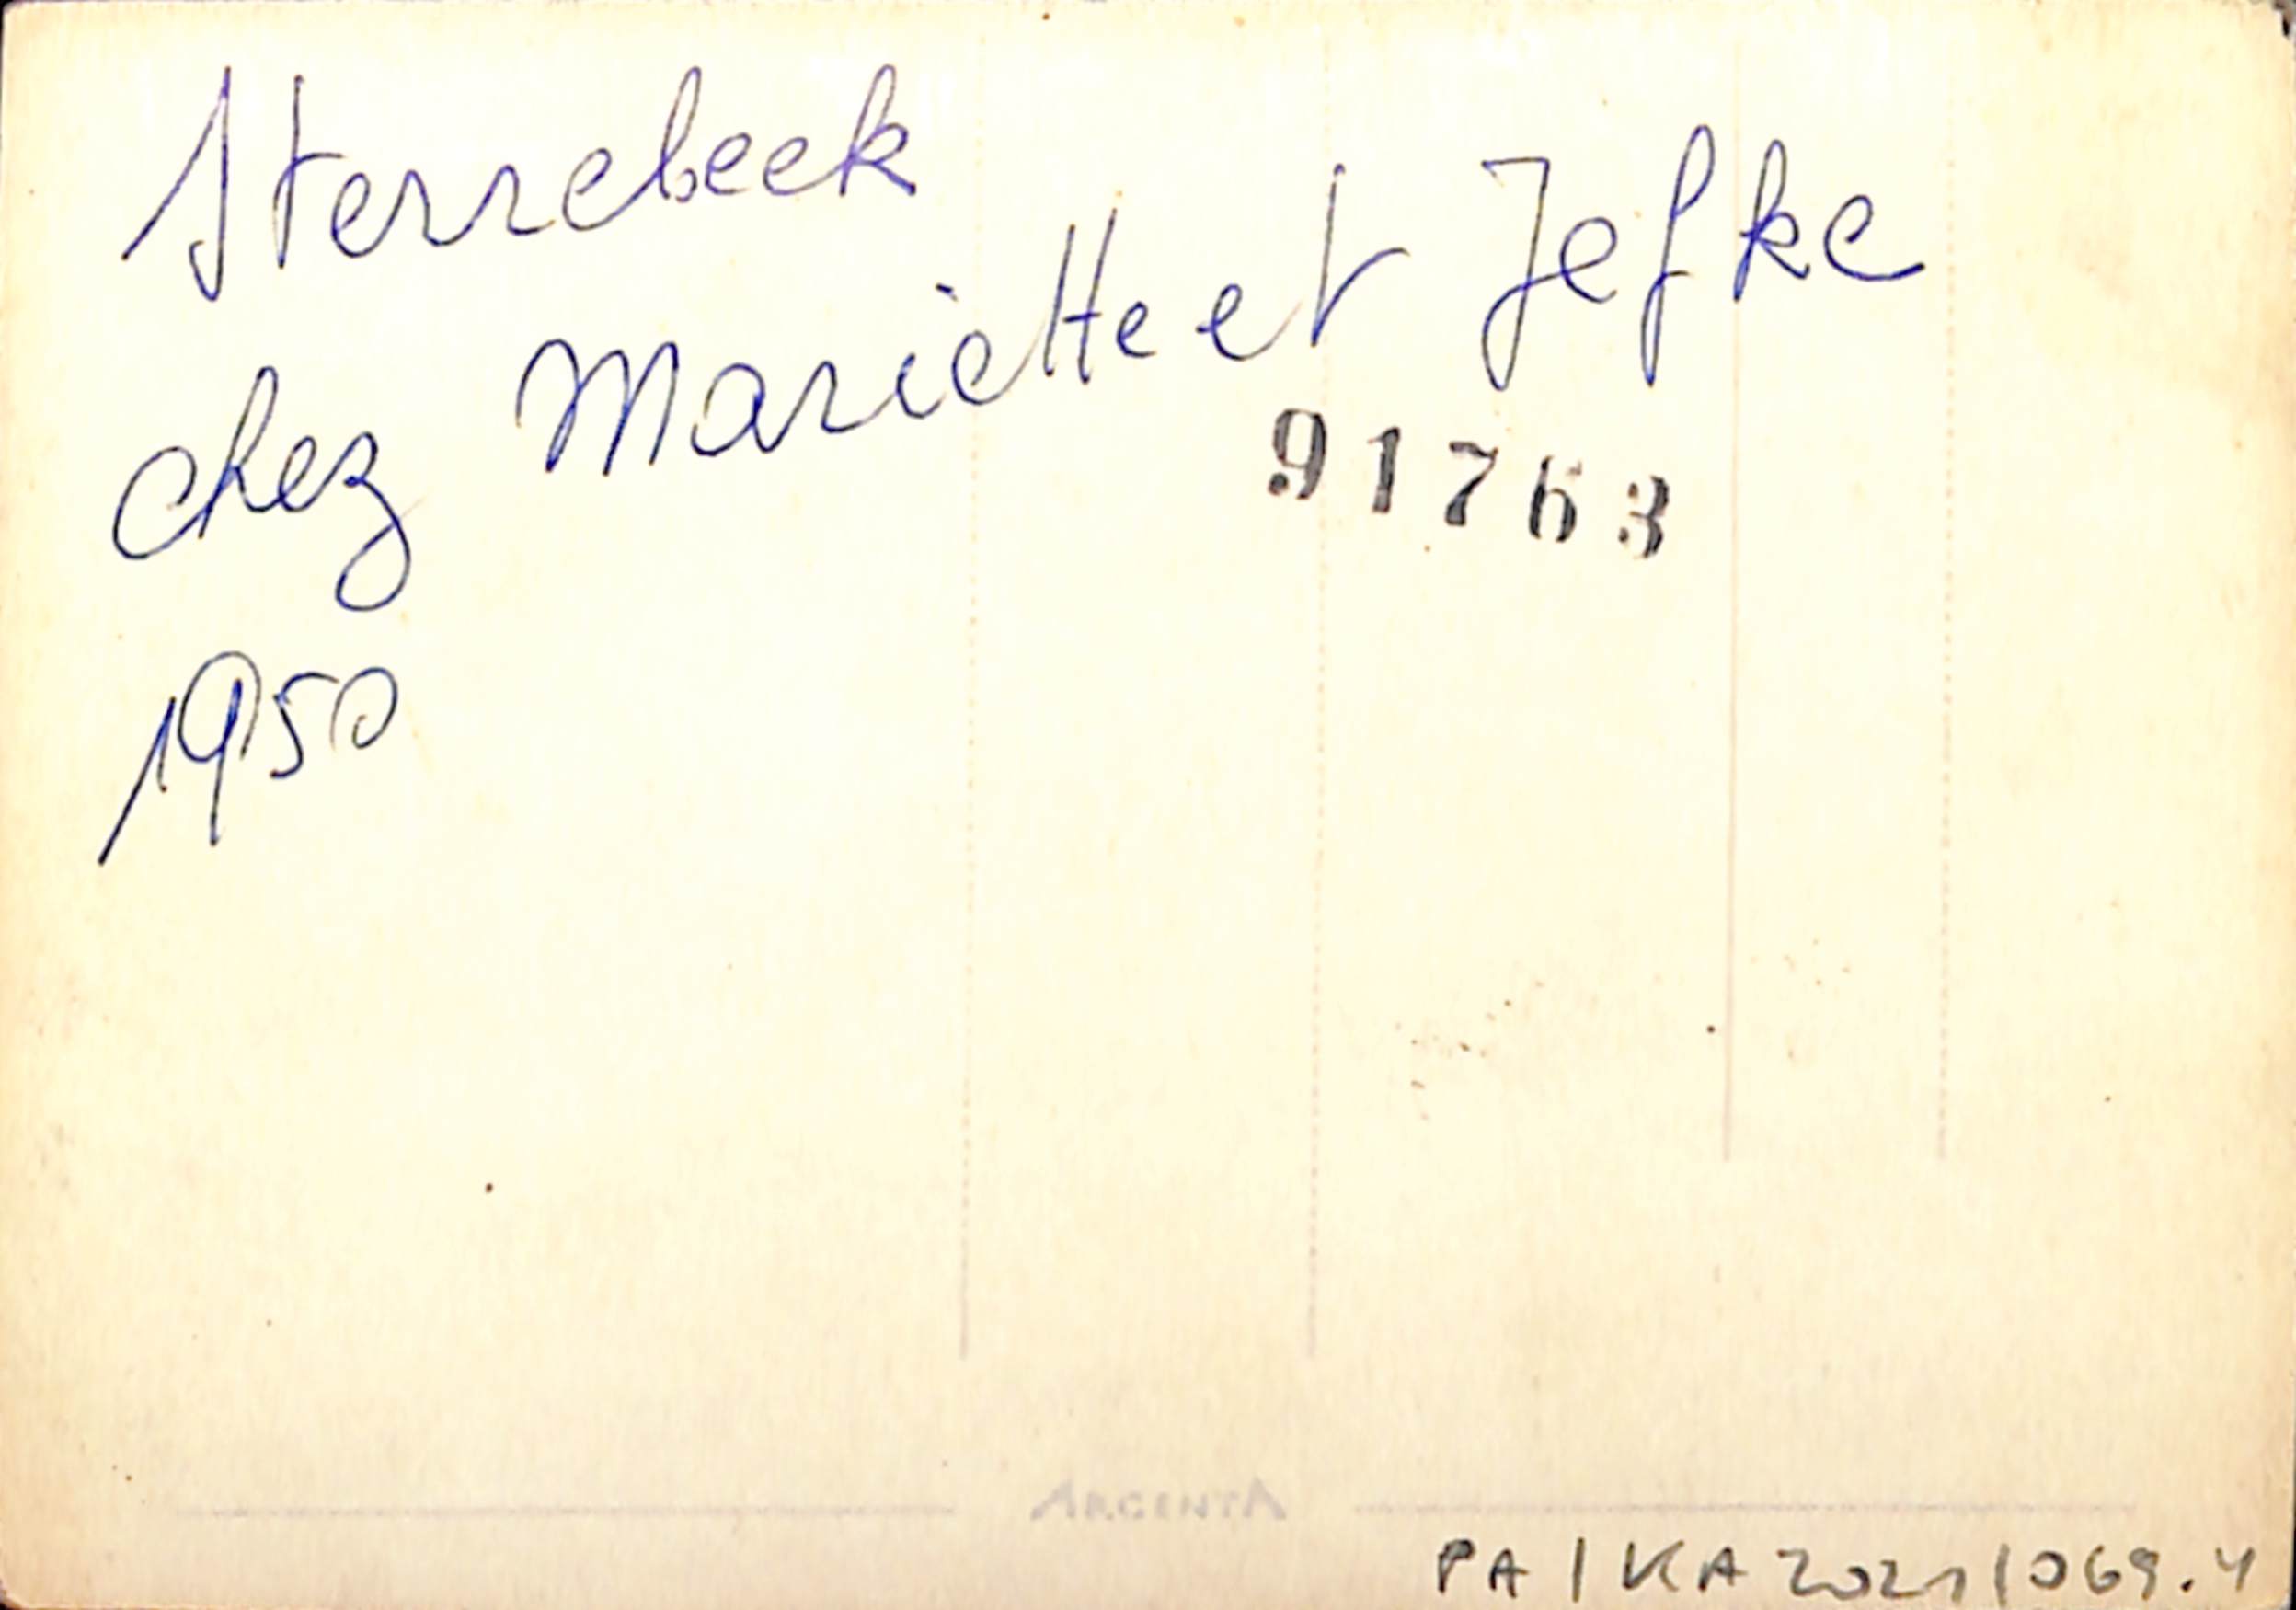 Sterrebeek
chez Mariette et Jefke
91763
1950
ARGENTA
PA/KA2021/069.4